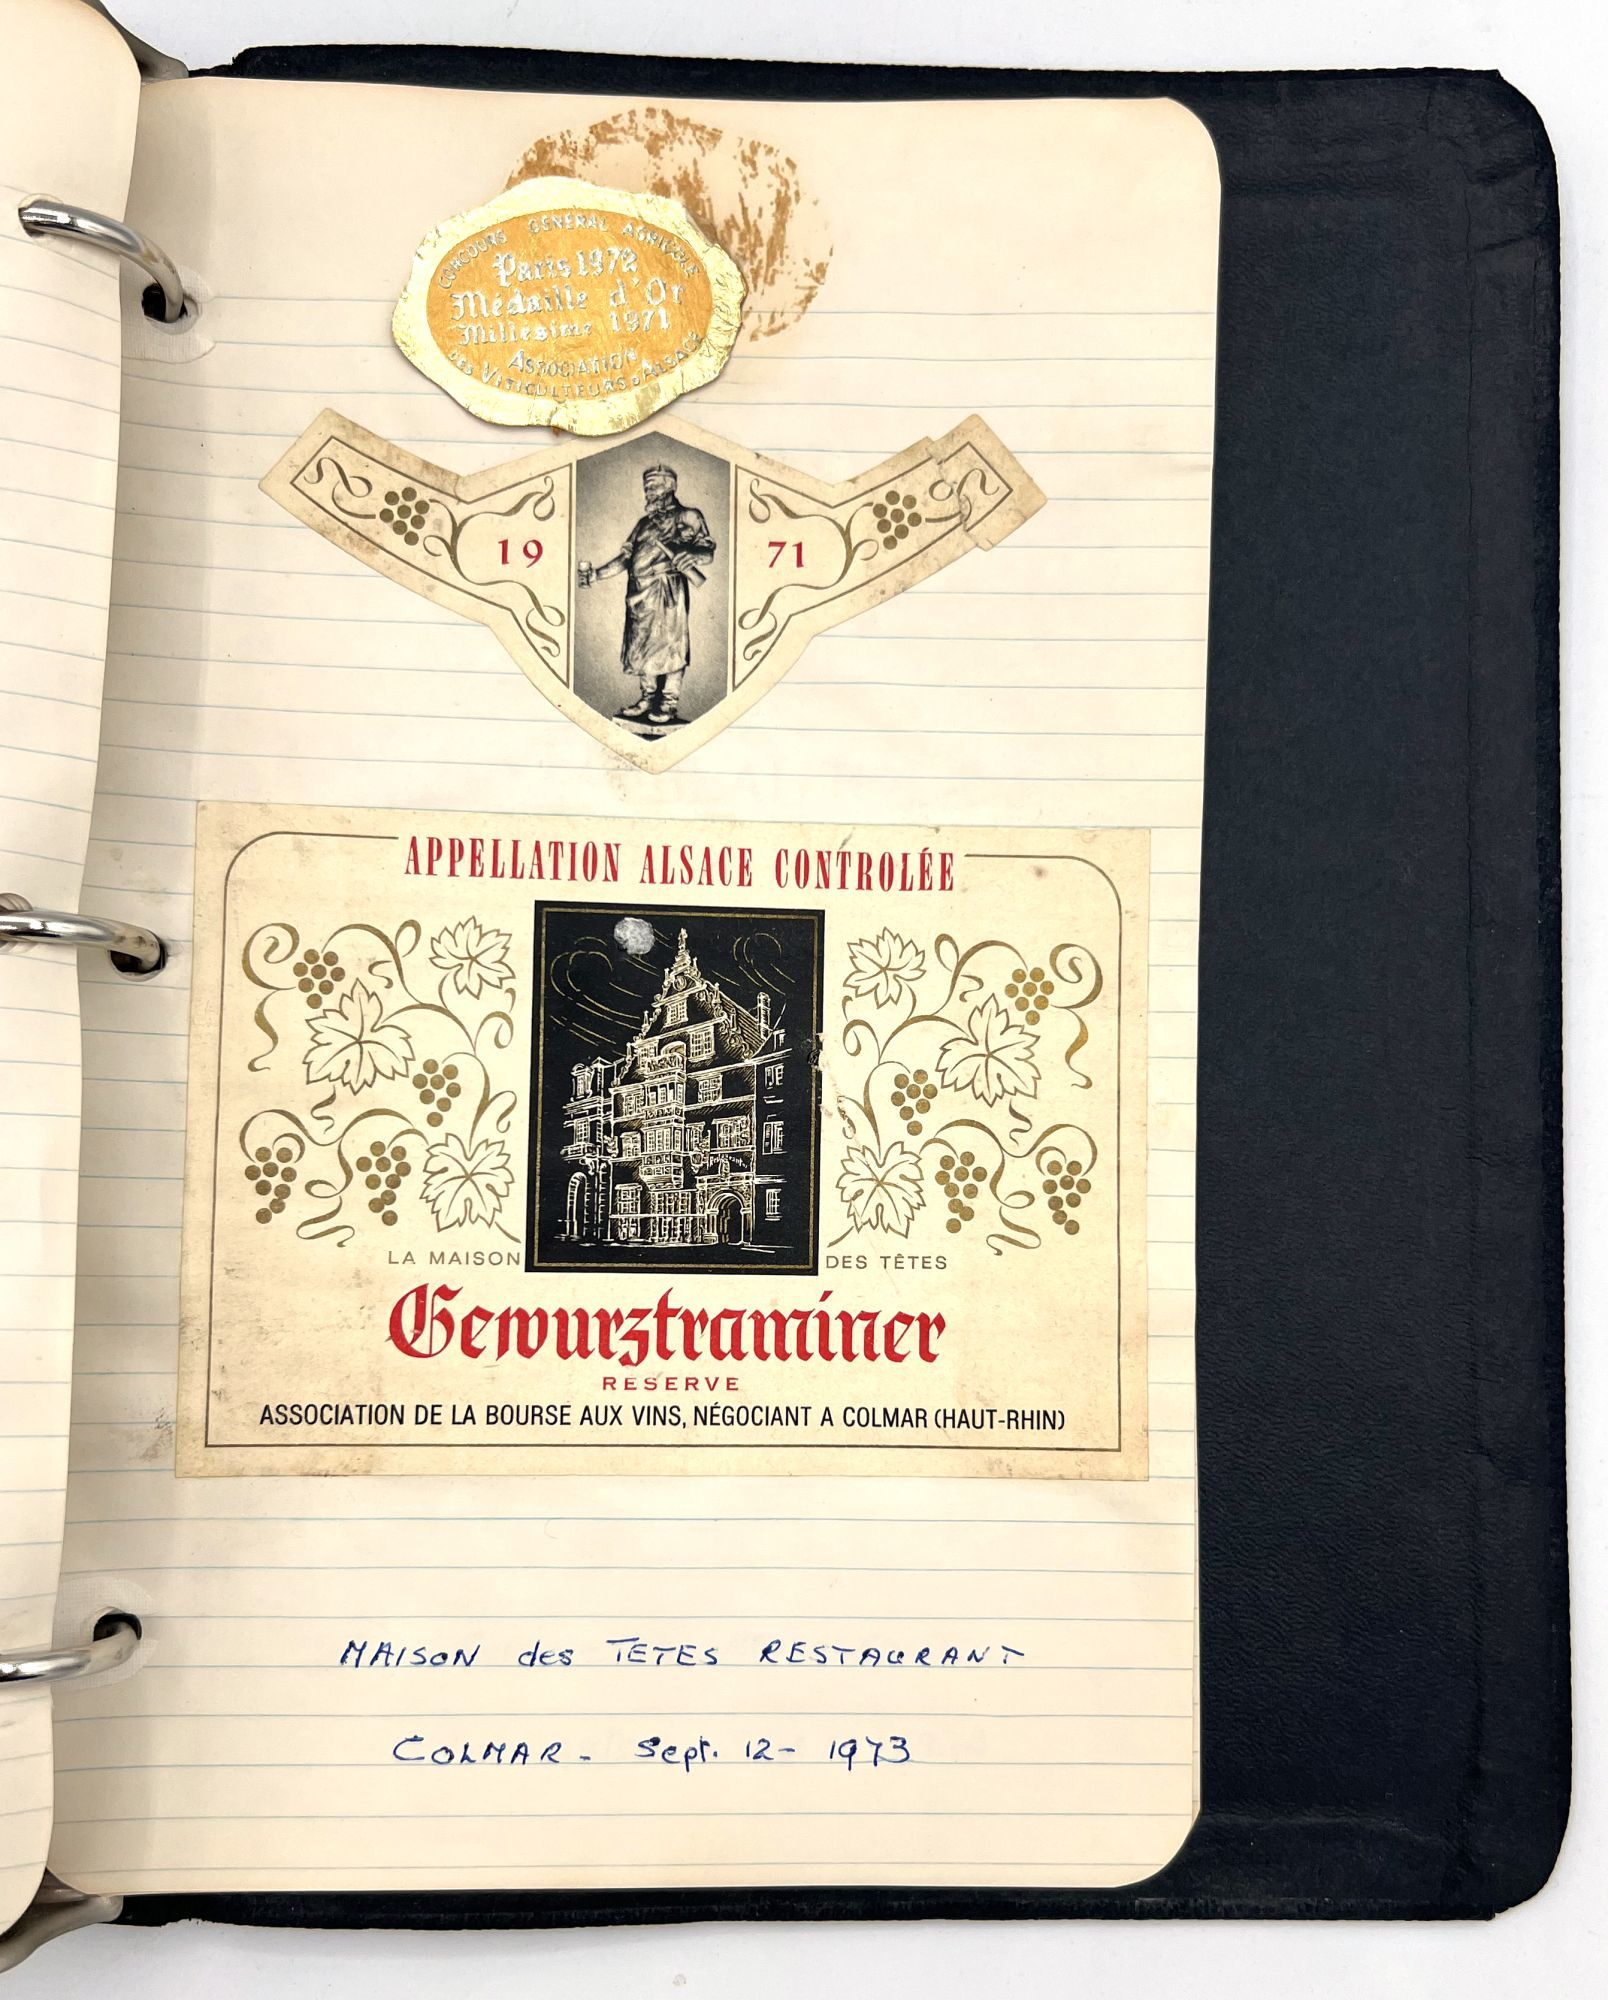 CONCOURS GÉNÉRAL AGRICOLE
Paris 1972
Médaille d'Or
Millésime 1971
ASSOCIATION
DES VITICULTEURS D'ALSACE
19 71
APPELLATION ALSACE CONTROLÉE
LA MAISON DES TÊTES
Gewurztraminer
RÉSERVE
ASSOCIATION DE LA BOURSE AUX VINS, NÉGOCIANT A COLMAR (HAUT-RHIN)
MAISON des TETES RESTAURANT
COLMAR - Sept. 12 - 1973